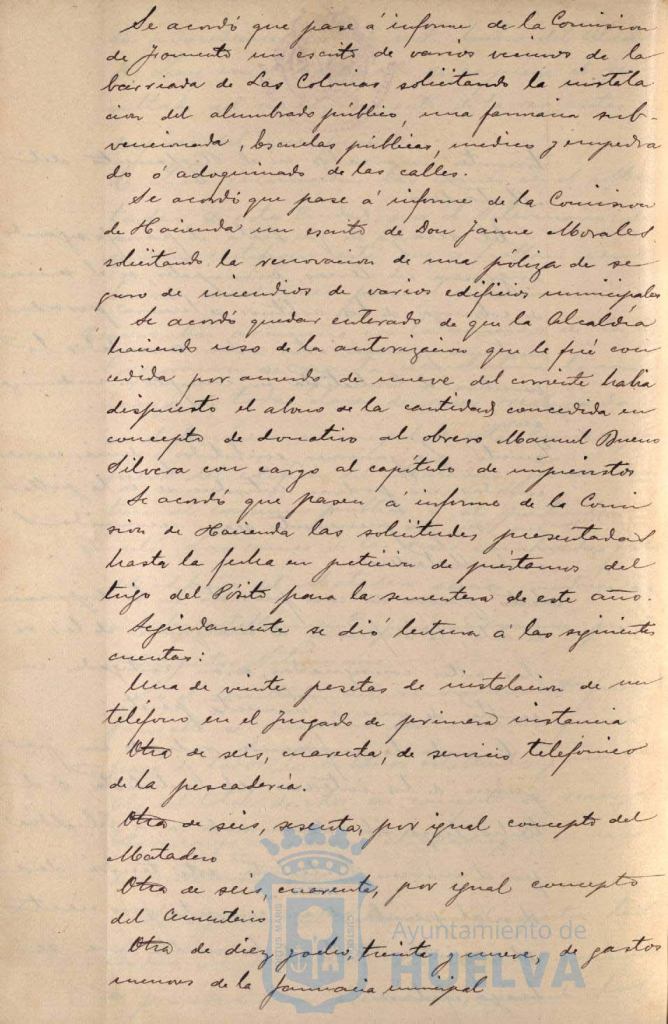 Se acordó que pase á informe de la Comision
de Fomento un escrito de varios vecinos de la
barriada de Las Colonias solicitando la instala
cion del alumbrado público, una farmacia sub-
vencionada, Escuelas públicas, médico y empedra
do ó adoquinado de las calles.
Se acordó que pase á informe de la Comision
de Hacienda un escrito de Don Jaime Morales
solicitando la renovacion de una póliza de se
guro de incendios de varios edificios municipales
Se acordó quedar enterado de que la Alcaldía
haciendo uso de la autorizacion que le fué con
cedida por acuerdo de nueve del corriente habia
dispuesto el abono de la cantidad concedida en
concepto de donativo al obrero Manuel Bueno
Silvera con cargo al capítulo de imprevistos
Se acordó que pasen á informe de la Comi
sion de Hacienda las solicitudes presentadas
hasta la fecha en peticion de préstamos del
trigo del Pósito para la sementera de este año.
Seguidamente se dió lectura á las siguientes
cuentas:
Una de veinte pesetas de instalacion de un
teléfono en el Juzgado de primera instancia
Otra de seis, cuarenta, de servicio telefónico
de la pescadería.
Otra de seis, sesenta, por igual concepto del
Matadero
Otra de seis, cuarenta, por igual concepto
del Cementerio
Otra de diez y ocho, treinta y nueve, de gastos
menores de la farmacia municipal
Ayuntamiento de
HUELVA